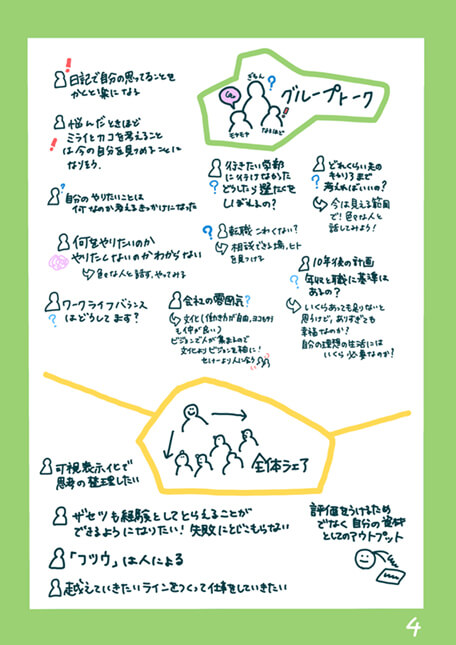 日記で自分の思ってることを
かくと楽になる
悩んだときほど
ミライとカコを考えること
は今の自分を見つめることに
なりそう。
自分のやりたいことは
何なのか考えるきっかけになった
何をやりたいのか
やりたくないのかわからない
色々な人と話す、やってみる
ワークライフバランス
はどうしてます?
ぎもん
モヤモヤ
なるほど
グループトーク
行きたい学部
に行けなかった
どうしたら選たくを
しぼれるの?
転職こわくない?
相談できる場、ヒト
を見つける
会社の雰囲気?
文化(働き方が自由、ヨコもタテ
も仲が良い)
ビジョンで人が集まるので
文化よりビジョンを軸に!
セミナーより人に会う
どれくらい先の
キャリアまで
考えればいいの?
今は見える範囲
で!色々な人と
話してみよう!
10年後の計画
年収と職に基準は
あるの?
いくらあっても足りないと
思うけど、ありすぎても
幸福なのか?
自分の理想の生活には
いくら必要なのか?
全体シェア
可視表示化で
思考の整理したい
ザセツも経験としてとらえることが
できるようになりたい!失敗にとどこもらない
「フツウ」は人による
越えていきたいラインをつくって仕事をしていきたい
評価をうけるため
でなく自分の資材
としてのアウトプット
4